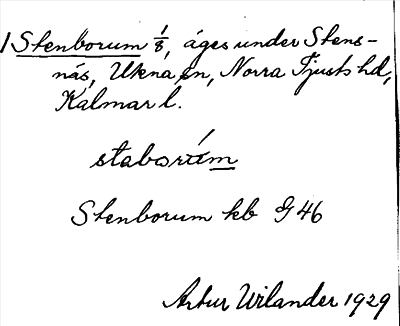 1 Stenborum 1/8, äges under Stens-
näs, Ukna sn, Norra Tjusts hd,
Kalmar l.
Stenborum kb G 46
Artur Wilander 1929